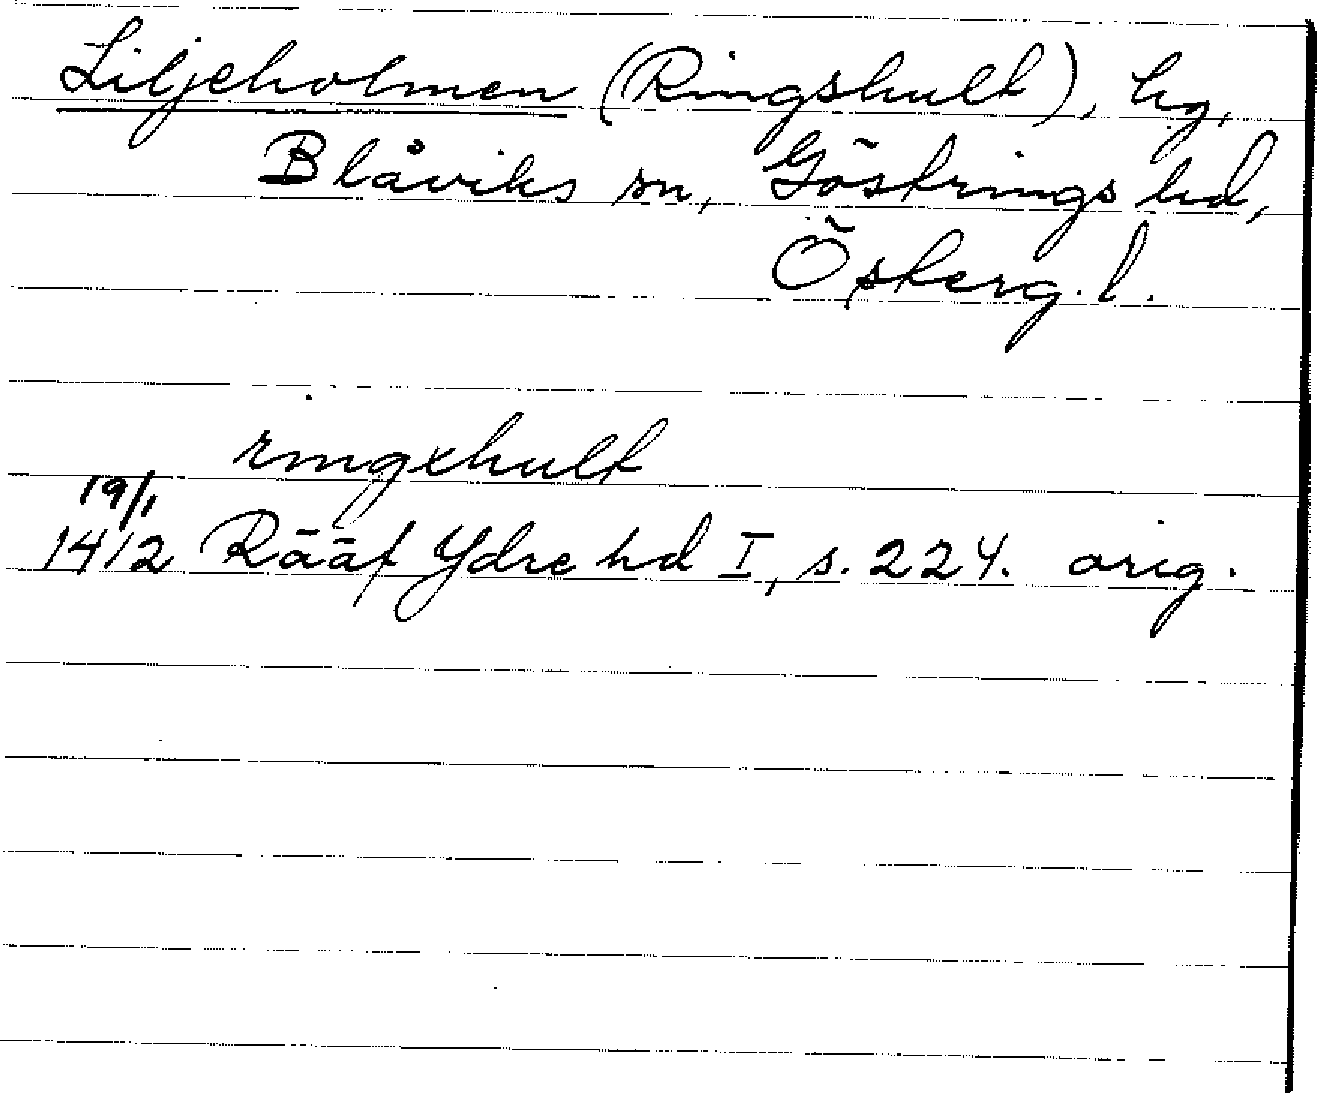 Liljeholmen (Ringshult), hg,
Blåviks sn, Göstrings hd,
Österg. l.
ringxhult
19/1
1412 Rääf Ydre hd I, s. 224. orig.